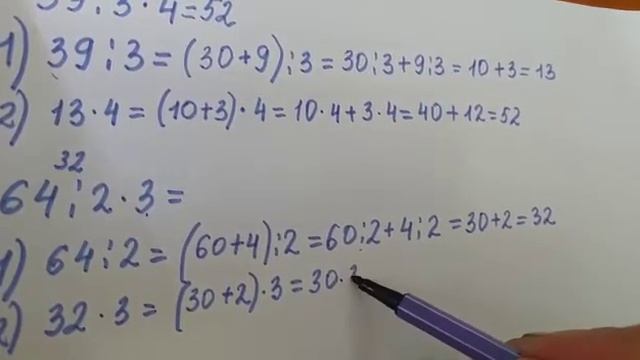 39:3·4=52
1) 39:3=(30+9):3=30:3+9:3=10+3=13
2) 13·4=(10+3)·4=10·4+3·4=40+12=52
32
64:2·3=
1) 64:2=(60+4):2=60:2+4:2=30+2=32
2) 32·3=(30+2)·3=30·